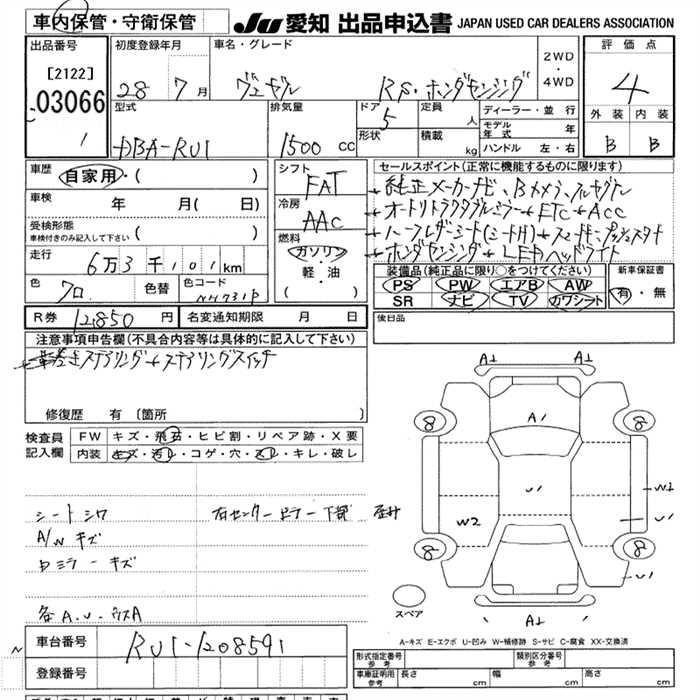 車内保管・守衛保管
JU 愛知 出品申込書 JAPAN USED CAR DEALERS ASSOCIATION
出品番号
[2122]
03066
1
初度登録年月
28 7月
車名・グレード
ヴェゼル RS・ホンダセンシング
2WD
・
4WD
評価点
4
外装 内装
B B
型式
DBA-RU1
排気量
1500 cc
ドア
5
定員
人
形状
積載
kg
ディーラー・並行
モデル年式 年
ハンドル 左・右
車歴
自家用・( )
車検 年 月( 日)
受検形態
車検付きのみ記入して下さい ( )
走行
6万3千101km
色
クロ
色替
色コード
NH731P
シフト
FAT
冷房
AAC
燃料
ガソリン
・
軽・油
( )
セールスポイント(正常に機能するものに限ります)
純正メーカーナビ、Bカメラ、フルセグTV
オートリトラクタブルミラー+ETC+ACC
ハーフレザーシート(シートH)+スマートキー、プッシュスタート
ホンダセンシング+LEDヘッドライト
装備品(純正品に限り○をつけてください)
PS PW エアB AW
SR ナビ TV カワシート
新車保証書
有・無
R券 12,850 円
名変通知期限 月 日
後日品
注意事項申告欄(不具合内容等は具体的に記入して下さい)
革巻きステアリング+ステアリングスイッチ
修復歴 有 〔箇所 〕
検査員
記入欄
FW キズ・飛石・ヒビ割・リペア跡・X要
内装 キズ・汚レ・コゲ・穴・スレ・キレ・破レ
シートシワ
A/Wキズ
ロミラーキズ
各A.U.ウスA
A1
A1
8
8
U1
W2
W2
U1
8
8
U1
A1
スペア
A-キズ E-エクボ U-凹み W-補修跡 S-サビ C-腐食 XX-交換済
車台番号 RU1-1208591
登録番号
形式指定番号
参考
類別区分番号
参考
車庫証明用
参考
長さ cm 幅 cm 高さ cm